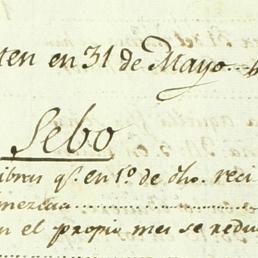 ten en 31 de Mayo
Sebo
libras q.e en 1.o de dho. reci
en el propio mes se redu